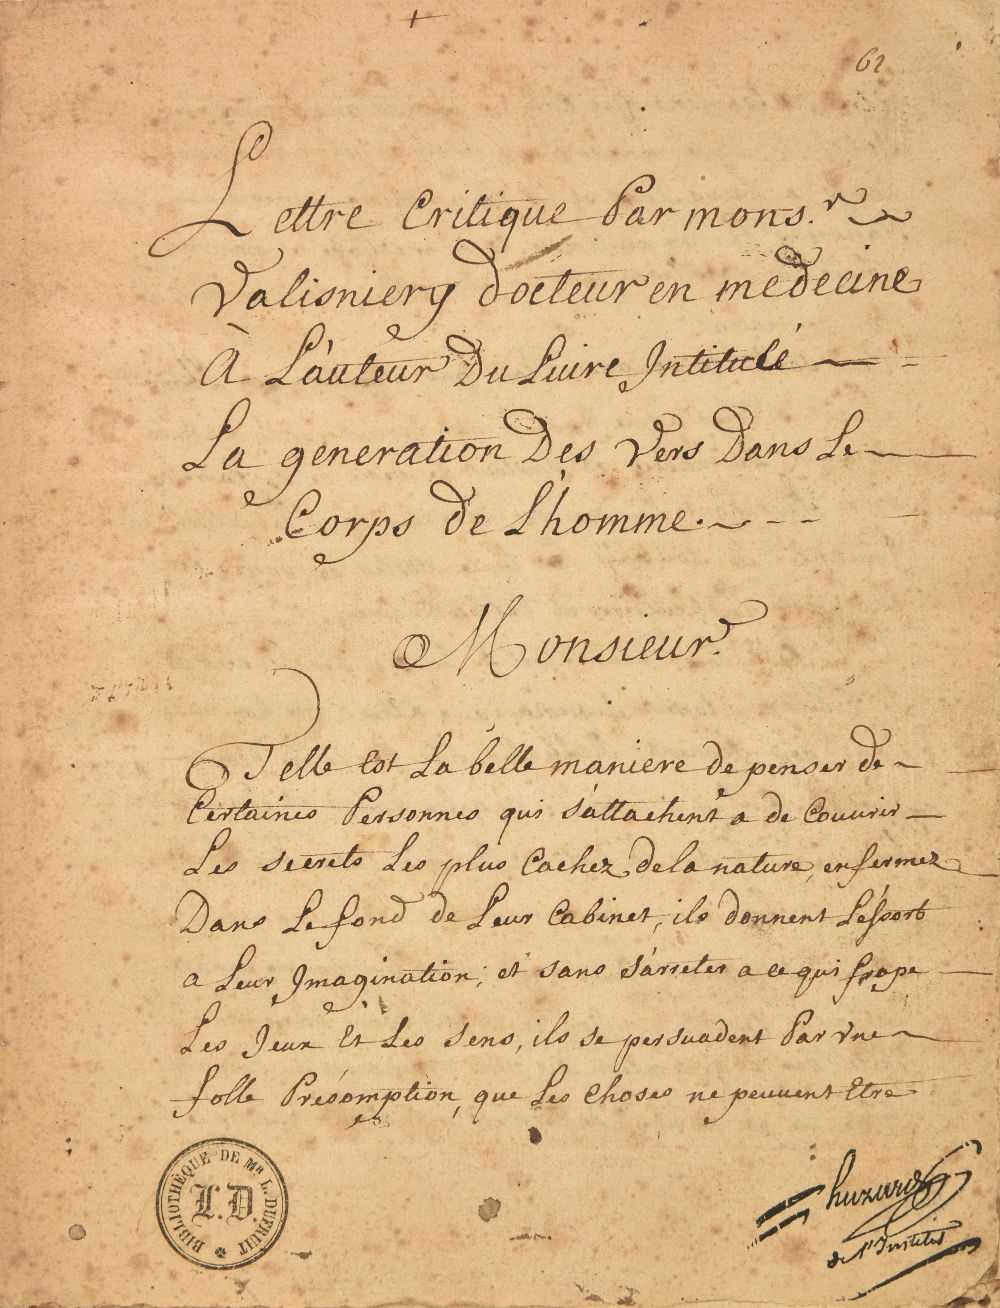 62
Lettre Critique Par mons.r
Valisniery docteur en medecine
A L'auteur Du Livire Intitulé
La generation Des Vers Dans Le
Corps de L'homme.
Monsieur.
Telle Est La belle maniere de penser de
Certaines Personnes qui s'attachent a de Couurir
Les secrets Les plus Cachez de la nature, enfermez
Dans Le fond de Leur Cabinet, ils donnent L'éssort
a Leur Imagination, et sans s'arreter a ce qui frape
Les Jeux Et Les sens, ils se persuadent Par vne
folle Présomption, que Les Choses ne peuuent Etre
BIBLIOTHÈQUE DE MR L. DUFRUIT
L.D.
huzard
de l'Institut